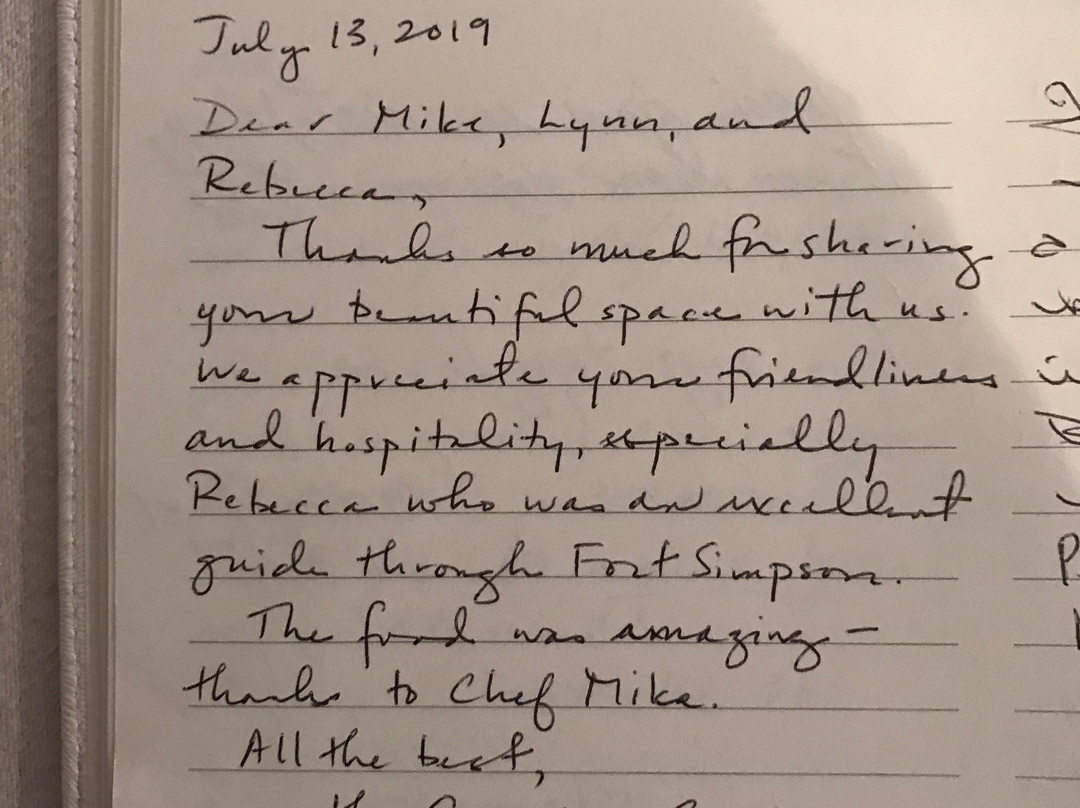 July 13, 2019
Dear Mike, Lynn, and
Rebecca,
Thanks so much for sharing
your beautiful space with us.
We appreciate your friendliness
and hospitality, especially
Rebecca who was an excellent
guide through Fort Simpson.
The food was amazing –
thanks to Chef Mike.
All the best,